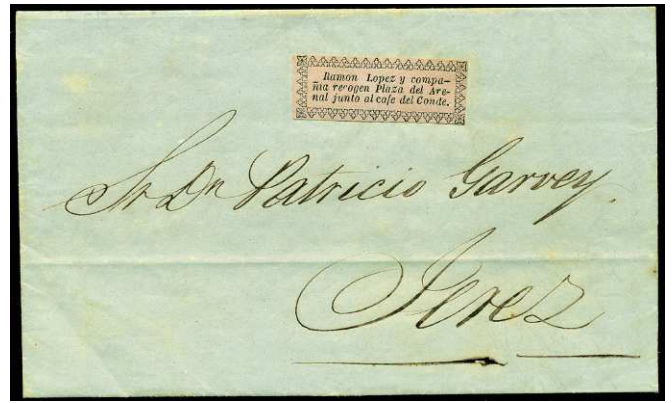 Ramon Lopez y compa-
ñia recogen Plaza del Are-
nal junto al cafe del Conde.
Sr Dn Patricio Garvey.
Jerez